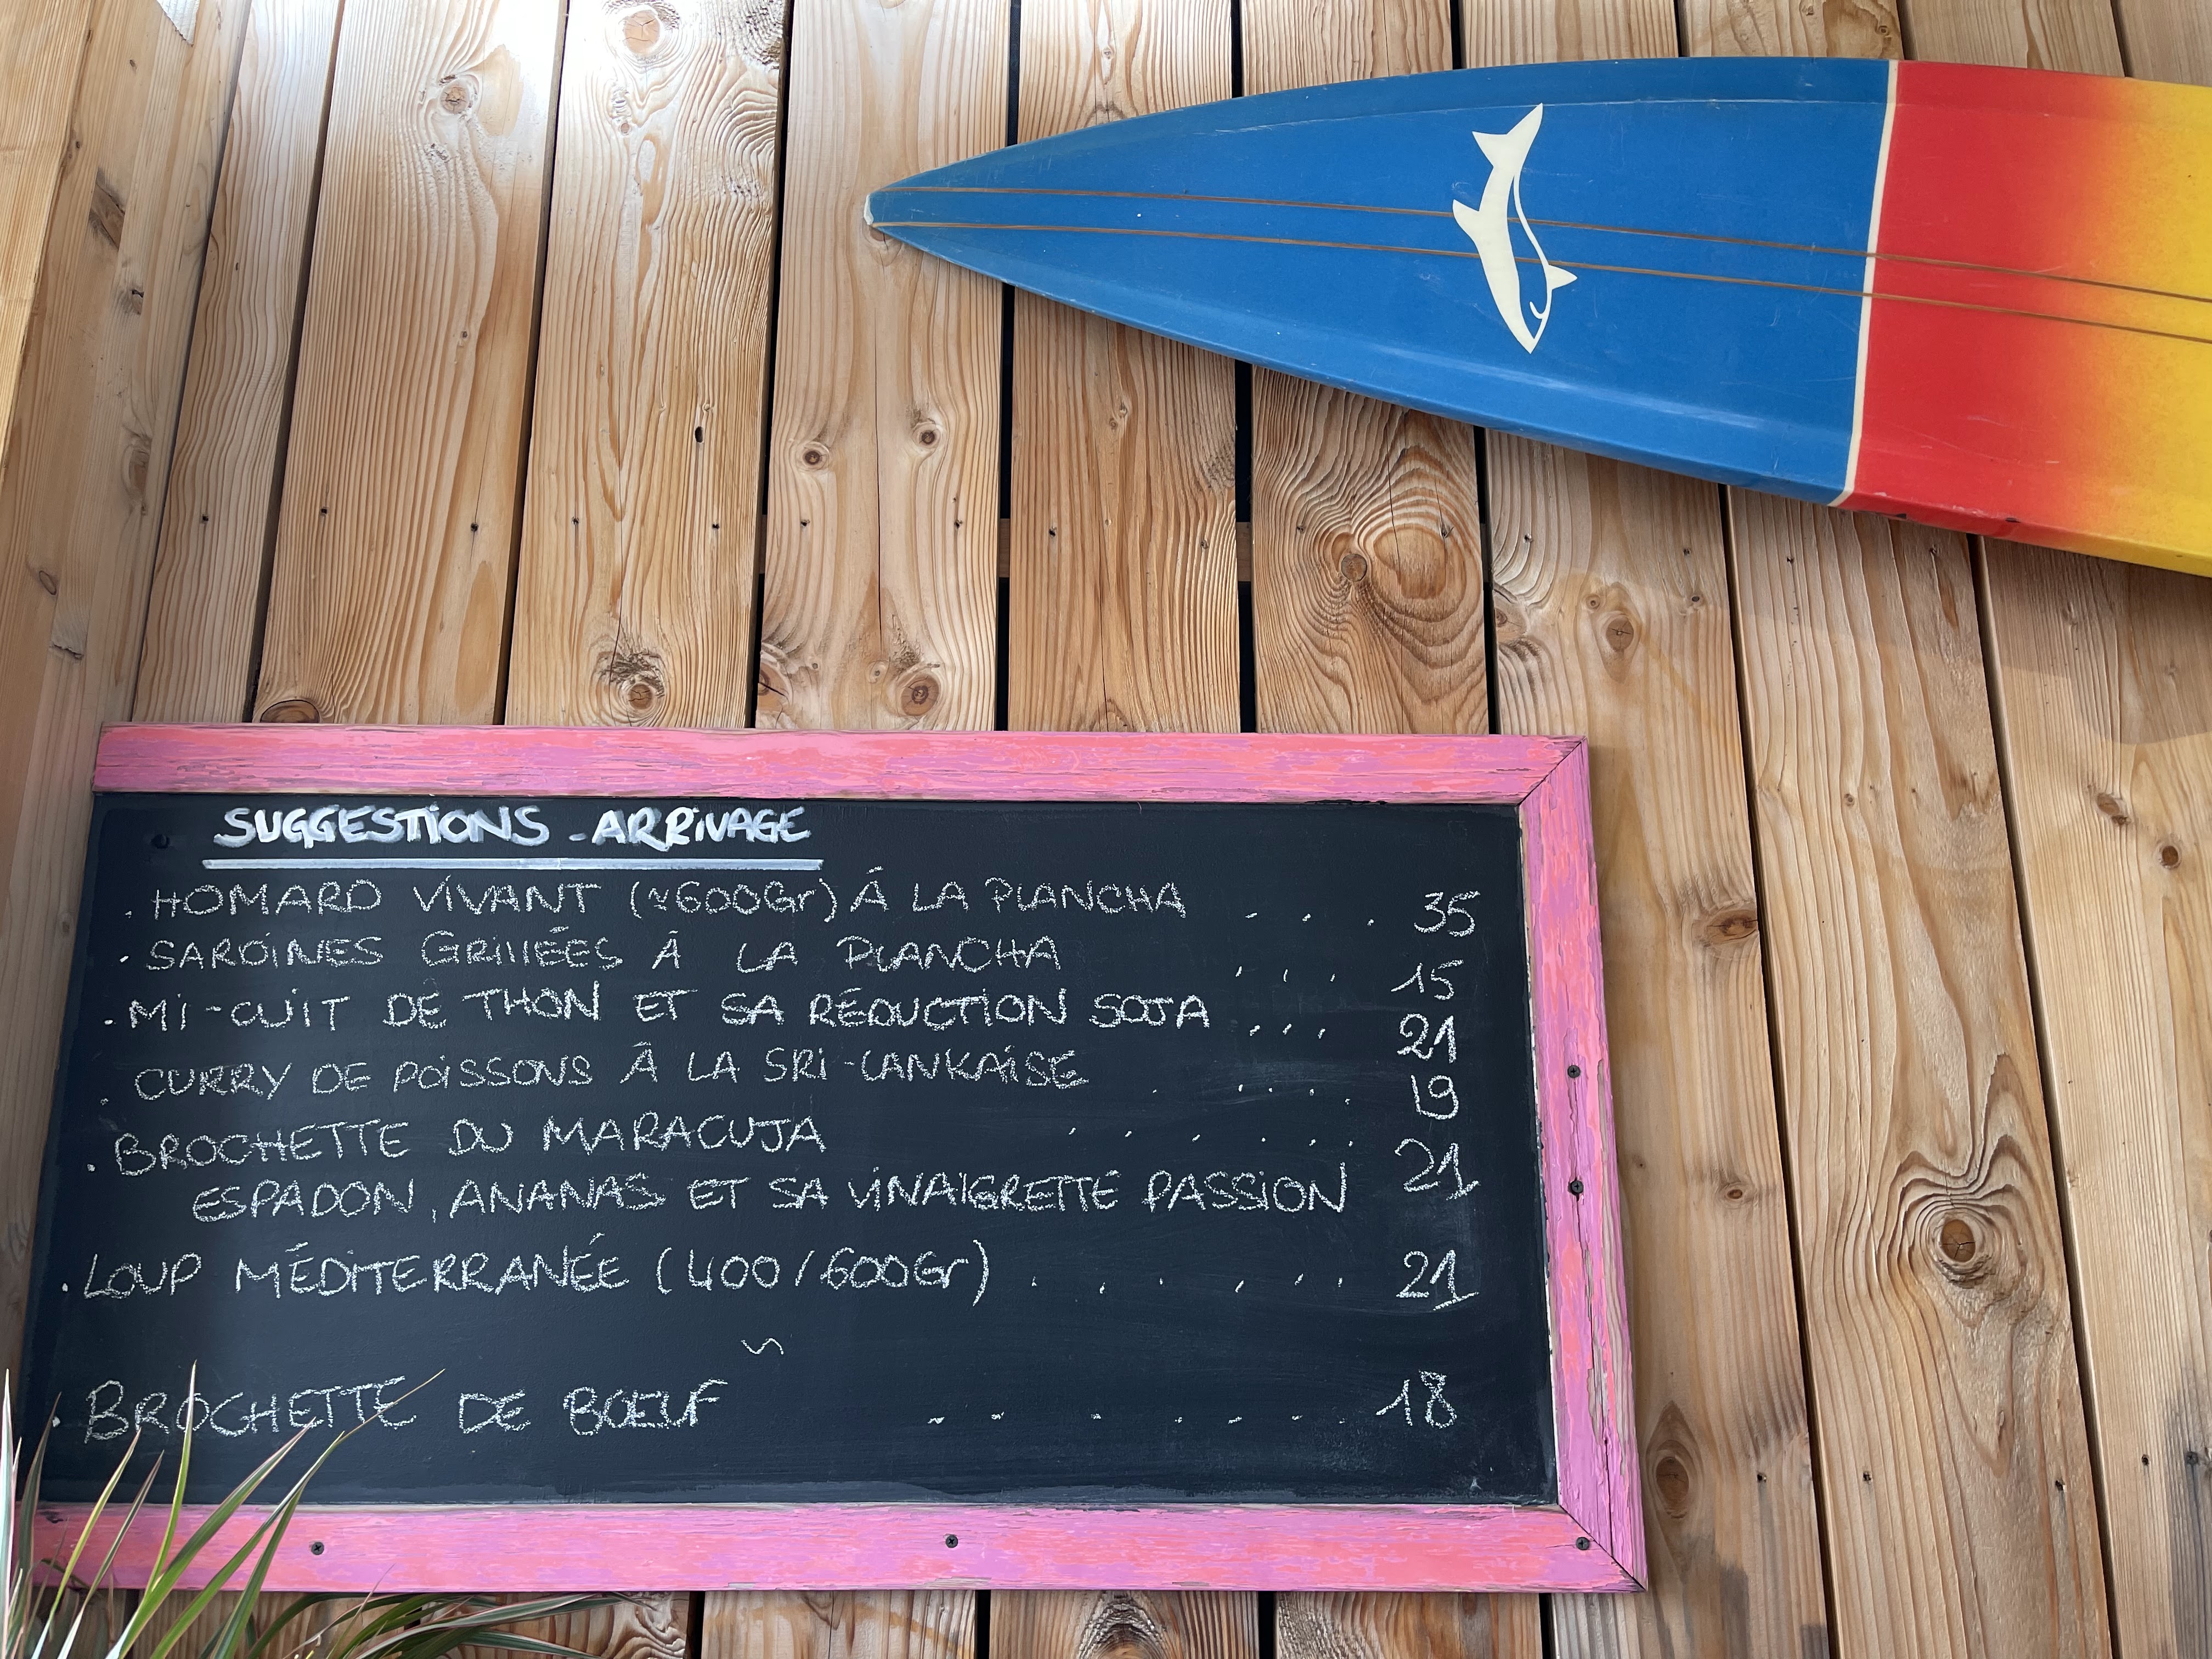 SUGGESTIONS - ARRIVAGE
. HOMARD VIVANT (≈600Gr) À LA PLANCHA . . . 35
. SARDINES GRILLÉES À LA PLANCHA . . . 15
. MI-CUIT DE THON ET SA RÉDUCTION SOJA . . . 21
. CURRY DE POISSONS À LA SRI-LANKAISE . . . . 19
. BROCHETTE DU MARACUJA . . . . . . 21
ESPADON, ANANAS ET SA VINAIGRETTE PASSION
. LOUP MÉDITERRANÉE (400/600Gr) . . . . . . 21
~
. BROCHETTE DE BŒUF . . . . . . . 18